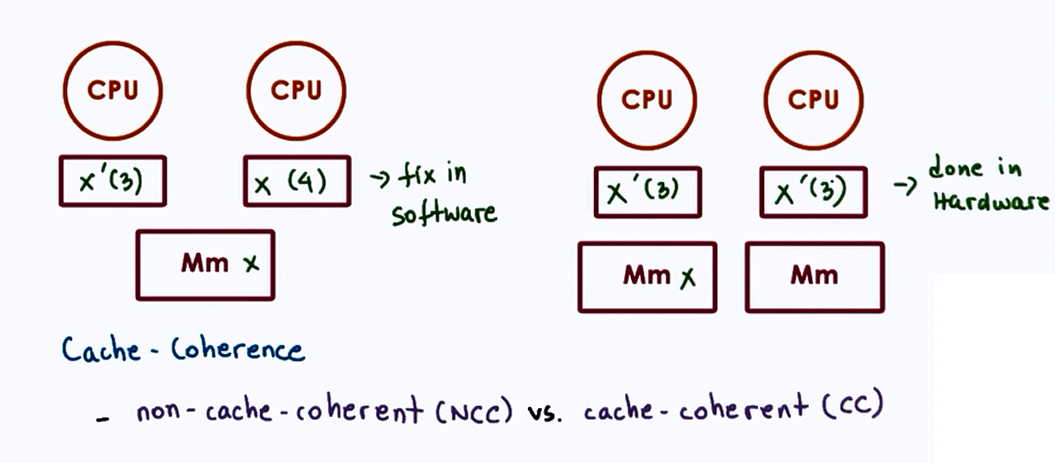 CPU CPU CPU CPU
x'(3) x (4) → fix in software
x'(3) x'(3) → done in Hardware
Mm x Mm x Mm
Cache - Coherence
- non-cache-coherent (NCC) vs. cache-coherent (CC)